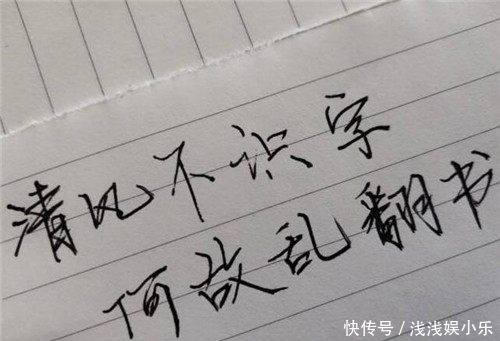 清风不识字
何故乱翻书
快传号／浅浅娱小乐